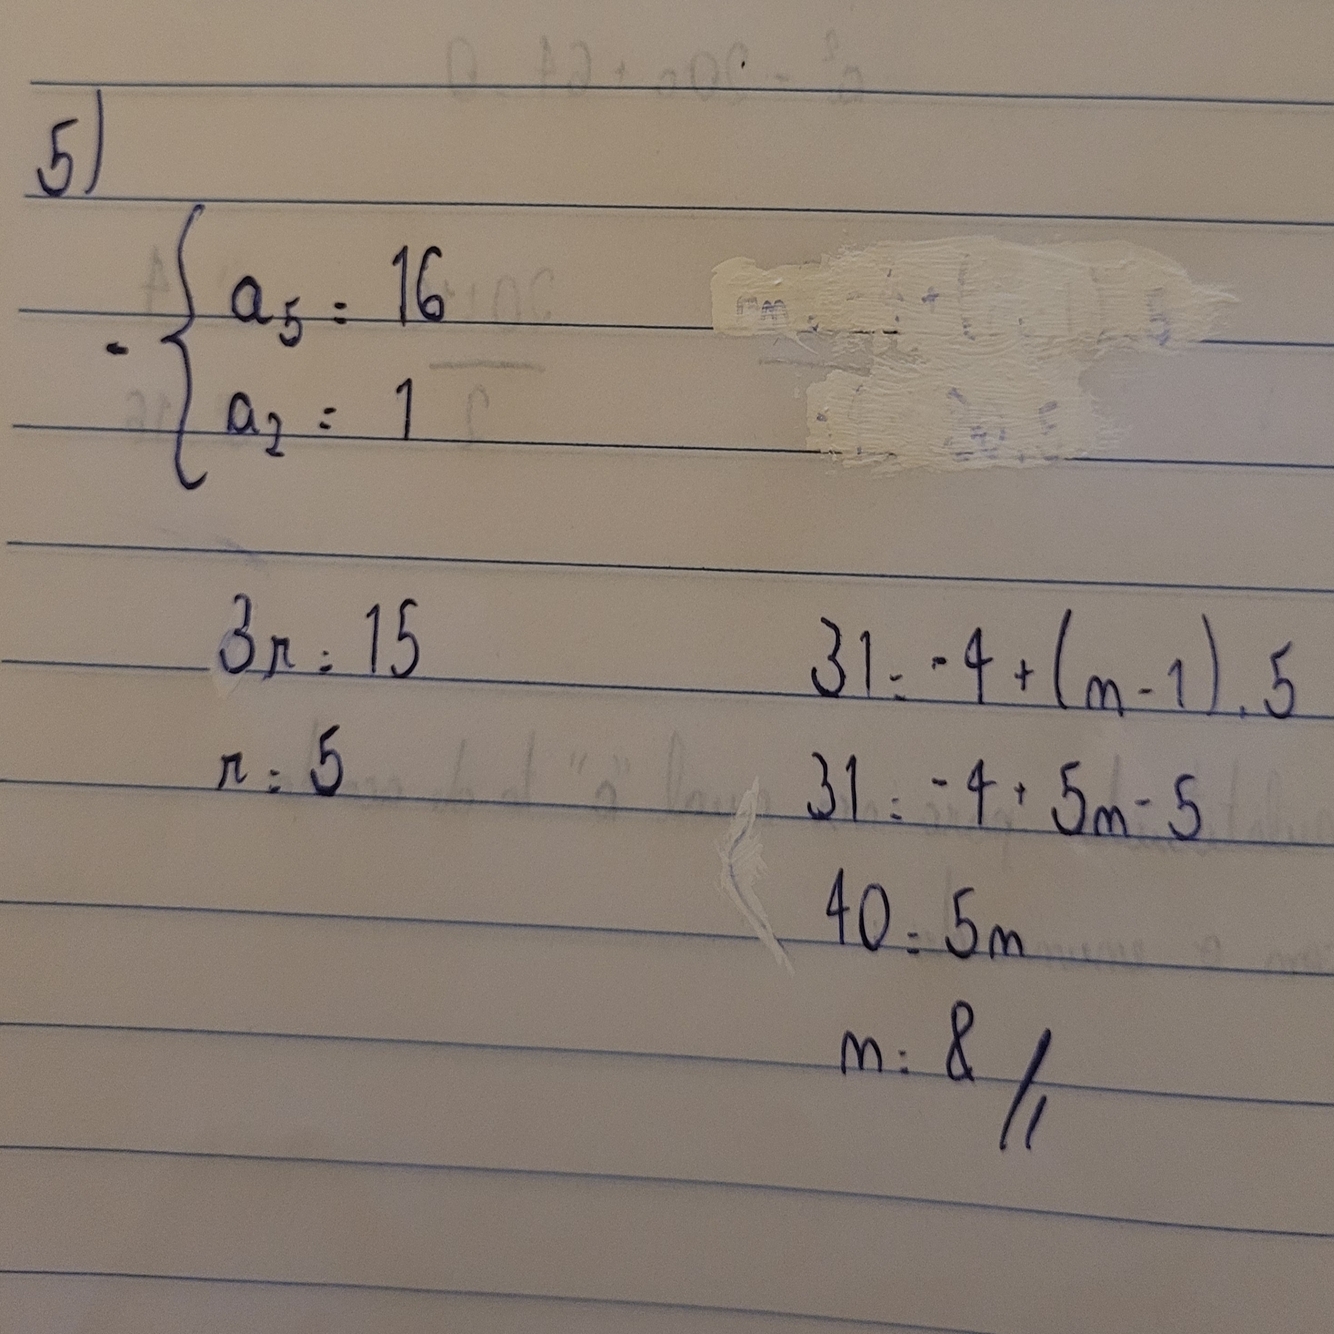 5)
- { a5 = 16
a2 = 1
3r = 15
r = 5
31 = -4 + (n - 1) . 5
31 = -4 + 5n - 5
40 = 5n
n = 8 //